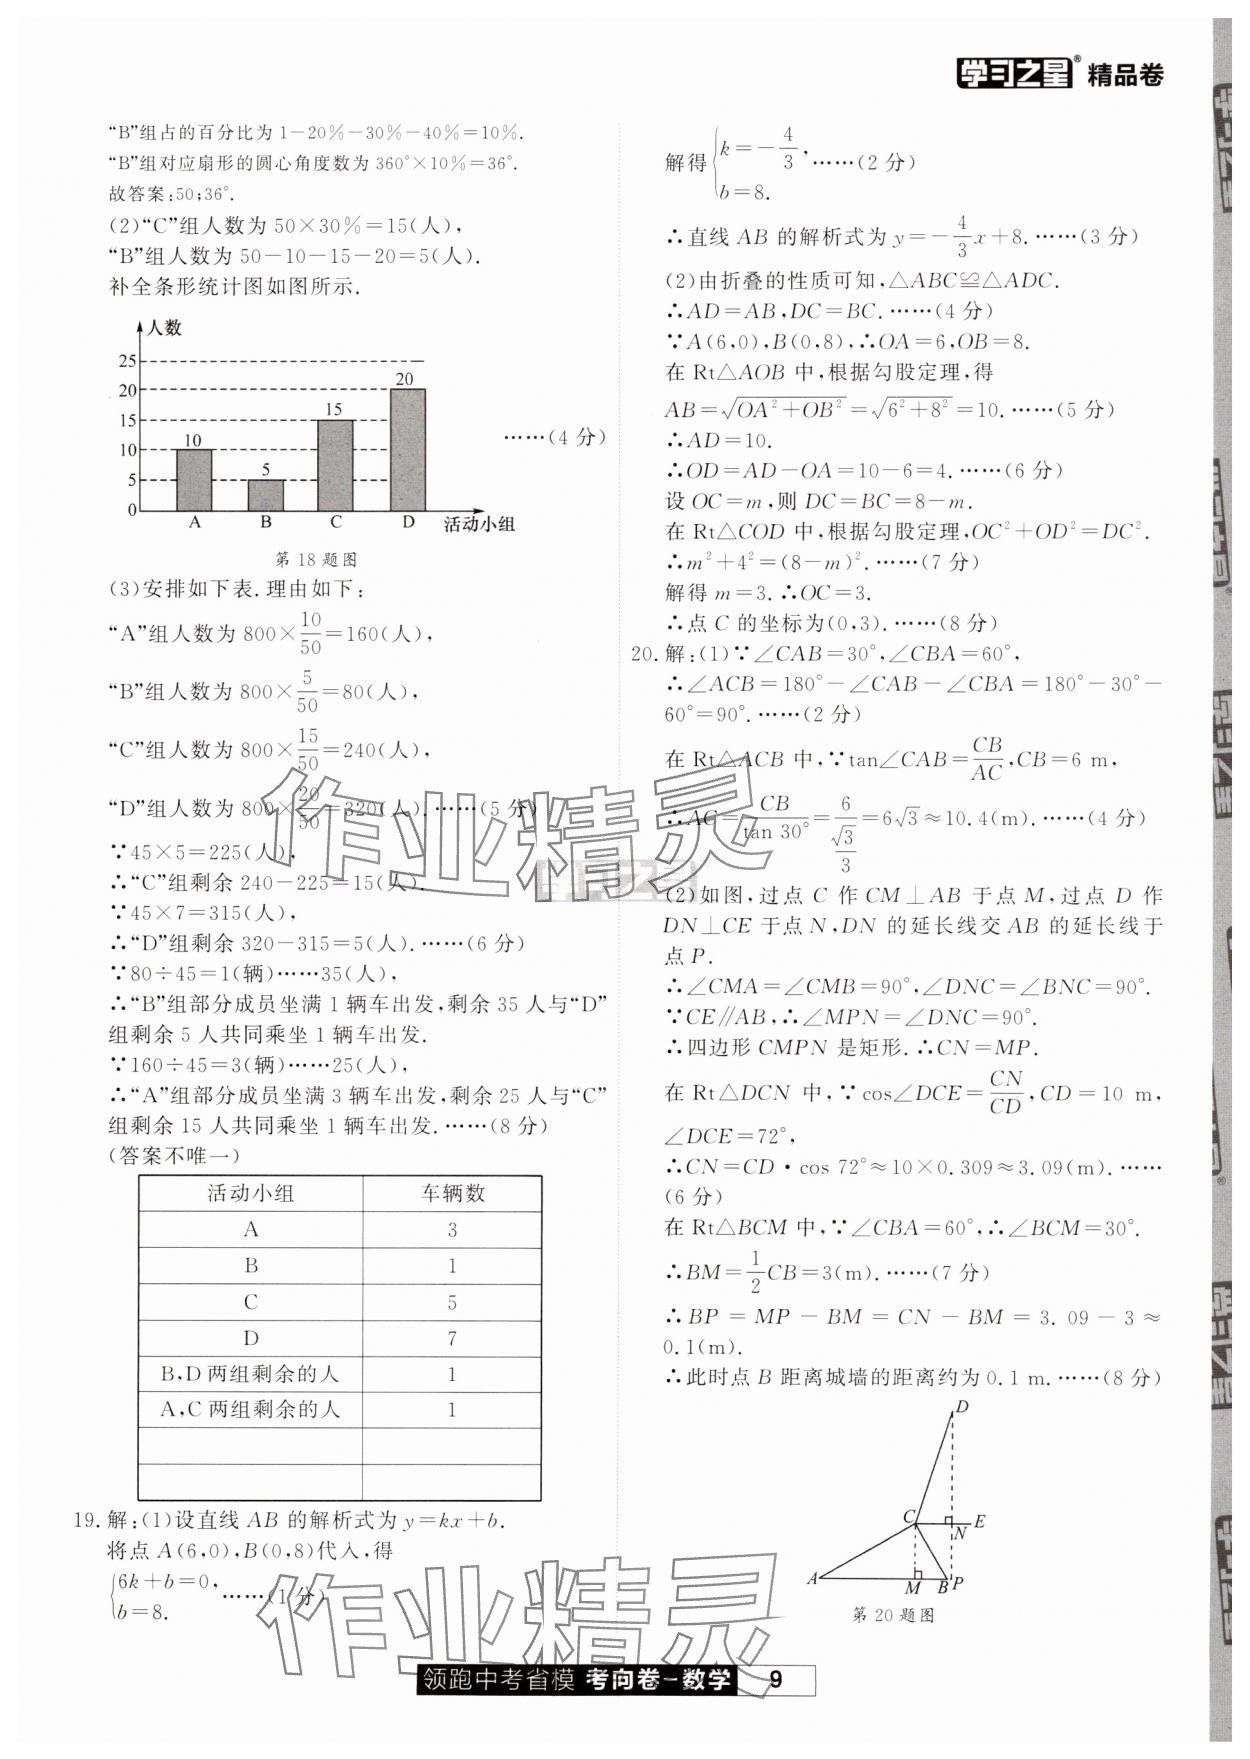 学习之星® 精品卷
“B”组占的百分比为 1－20％－30％－40％＝10％.
“B”组对应扇形的圆心角度数为 360°×10％＝36°.
故答案:50;36°.
(2)“C”组人数为 50×30％＝15(人),
“B”组人数为 50－10－15－20＝5(人).
补全条形统计图如图所示.
人数
25
20
15
10
5
0
10
5
15
20
A B C D 活动小组
……(4 分)
第 18 题图
(3)安排如下表.理由如下:
“A”组人数为 800×10/50＝160(人),
“B”组人数为 800×5/50＝80(人),
“C”组人数为 800×15/50＝240(人),
“D”组人数为 800×20/50＝320(人).……(5 分)
∵45×5＝225(人),
∴“C”组剩余 240－225＝15(人).
∵45×7＝315(人),
∴“D”组剩余 320－315＝5(人).……(6 分)
∵80÷45＝1(辆)……35(人),
∴“B”组部分成员坐满 1 辆车出发,剩余 35 人与“D”
组剩余 5 人共同乘坐 1 辆车出发.
∵160÷45＝3(辆)……25(人),
∴“A”组部分成员坐满 3 辆车出发,剩余 25 人与“C”
组剩余 15 人共同乘坐 1 辆车出发.……(8 分)
(答案不唯一)
活动小组 车辆数
A 3
B 1
C 5
D 7
B,D 两组剩余的人 1
A,C 两组剩余的人 1
19.解:(1)设直线 AB 的解析式为 y＝kx＋b.
将点 A(6,0),B(0,8)代入,得
{6k＋b＝0,
b＝8. ……(1 分)
解得{k＝－4/3,
b＝8. ……(2 分)
∴直线 AB 的解析式为 y＝－4/3x＋8.……(3 分)
(2)由折叠的性质可知,△ABC≌△ADC.
∴AD＝AB,DC＝BC.……(4 分)
∵A(6,0),B(0,8),∴OA＝6,OB＝8.
在 Rt△AOB 中,根据勾股定理,得
AB＝√(OA²＋OB²)＝√(6²＋8²)＝10.……(5 分)
∴AD＝10.
∴OD＝AD－OA＝10－6＝4.……(6 分)
设 OC＝m,则 DC＝BC＝8－m.
在 Rt△COD 中,根据勾股定理,OC²＋OD²＝DC².
∴m²＋4²＝(8－m)².……(7 分)
解得 m＝3.∴OC＝3.
∴点 C 的坐标为(0,3).……(8 分)
20.解:(1)∵∠CAB＝30°,∠CBA＝60°,
∴∠ACB＝180°－∠CAB－∠CBA＝180°－30°－
60°＝90°.……(2 分)
在 Rt△ACB 中,∵tan∠CAB＝CB/AC,CB＝6 m,
∴AC＝CB/tan 30°＝6/(√3/3)＝6√3≈10.4(m).……(4 分)
(2)如图,过点 C 作 CM⊥AB 于点 M,过点 D 作
DN⊥CE 于点 N,DN 的延长线交 AB 的延长线于
点 P.
∴∠CMA＝∠CMB＝90°,∠DNC＝∠BNC＝90°.
∵CE∥AB,∴∠MPN＝∠DNC＝90°.
∴四边形 CMPN 是矩形.∴CN＝MP.
在 Rt△DCN 中,∵cos∠DCE＝CN/CD,CD＝10 m,
∠DCE＝72°,
∴CN＝CD·cos 72°≈10×0.309≈3.09(m).……
(6 分)
在 Rt△BCM 中,∵∠CBA＝60°,∴∠BCM＝30°.
∴BM＝1/2CB＝3(m).……(7 分)
∴BP＝MP－BM＝CN－BM＝3.09－3≈
0.1(m).
∴此时点 B 距离城墙的距离约为 0.1 m.……(8 分)
D
C
N E
A M B P
第 20 题图
作业精灵
学习之星
作业精灵
领跑中考省模 考向卷－数学 9
学习之星